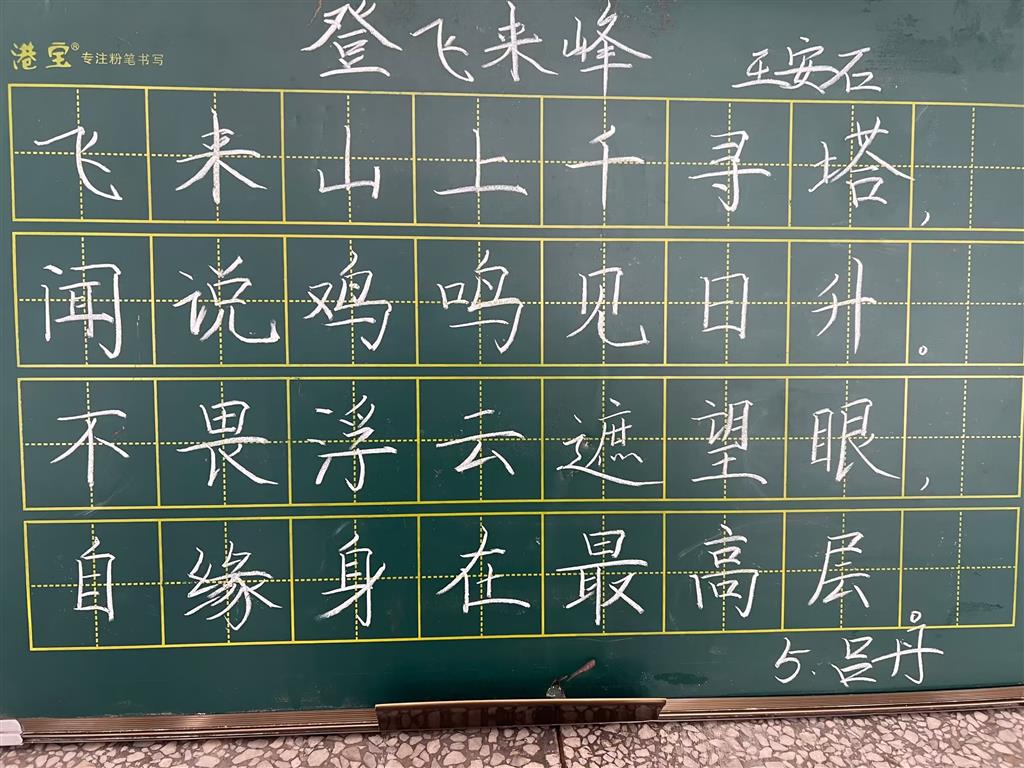 港宝® 专注粉笔书写
登飞来峰
王安石
飞来山上千寻塔，
闻说鸡鸣见日升。
不畏浮云遮望眼，
自缘身在最高层。
5.吕丹